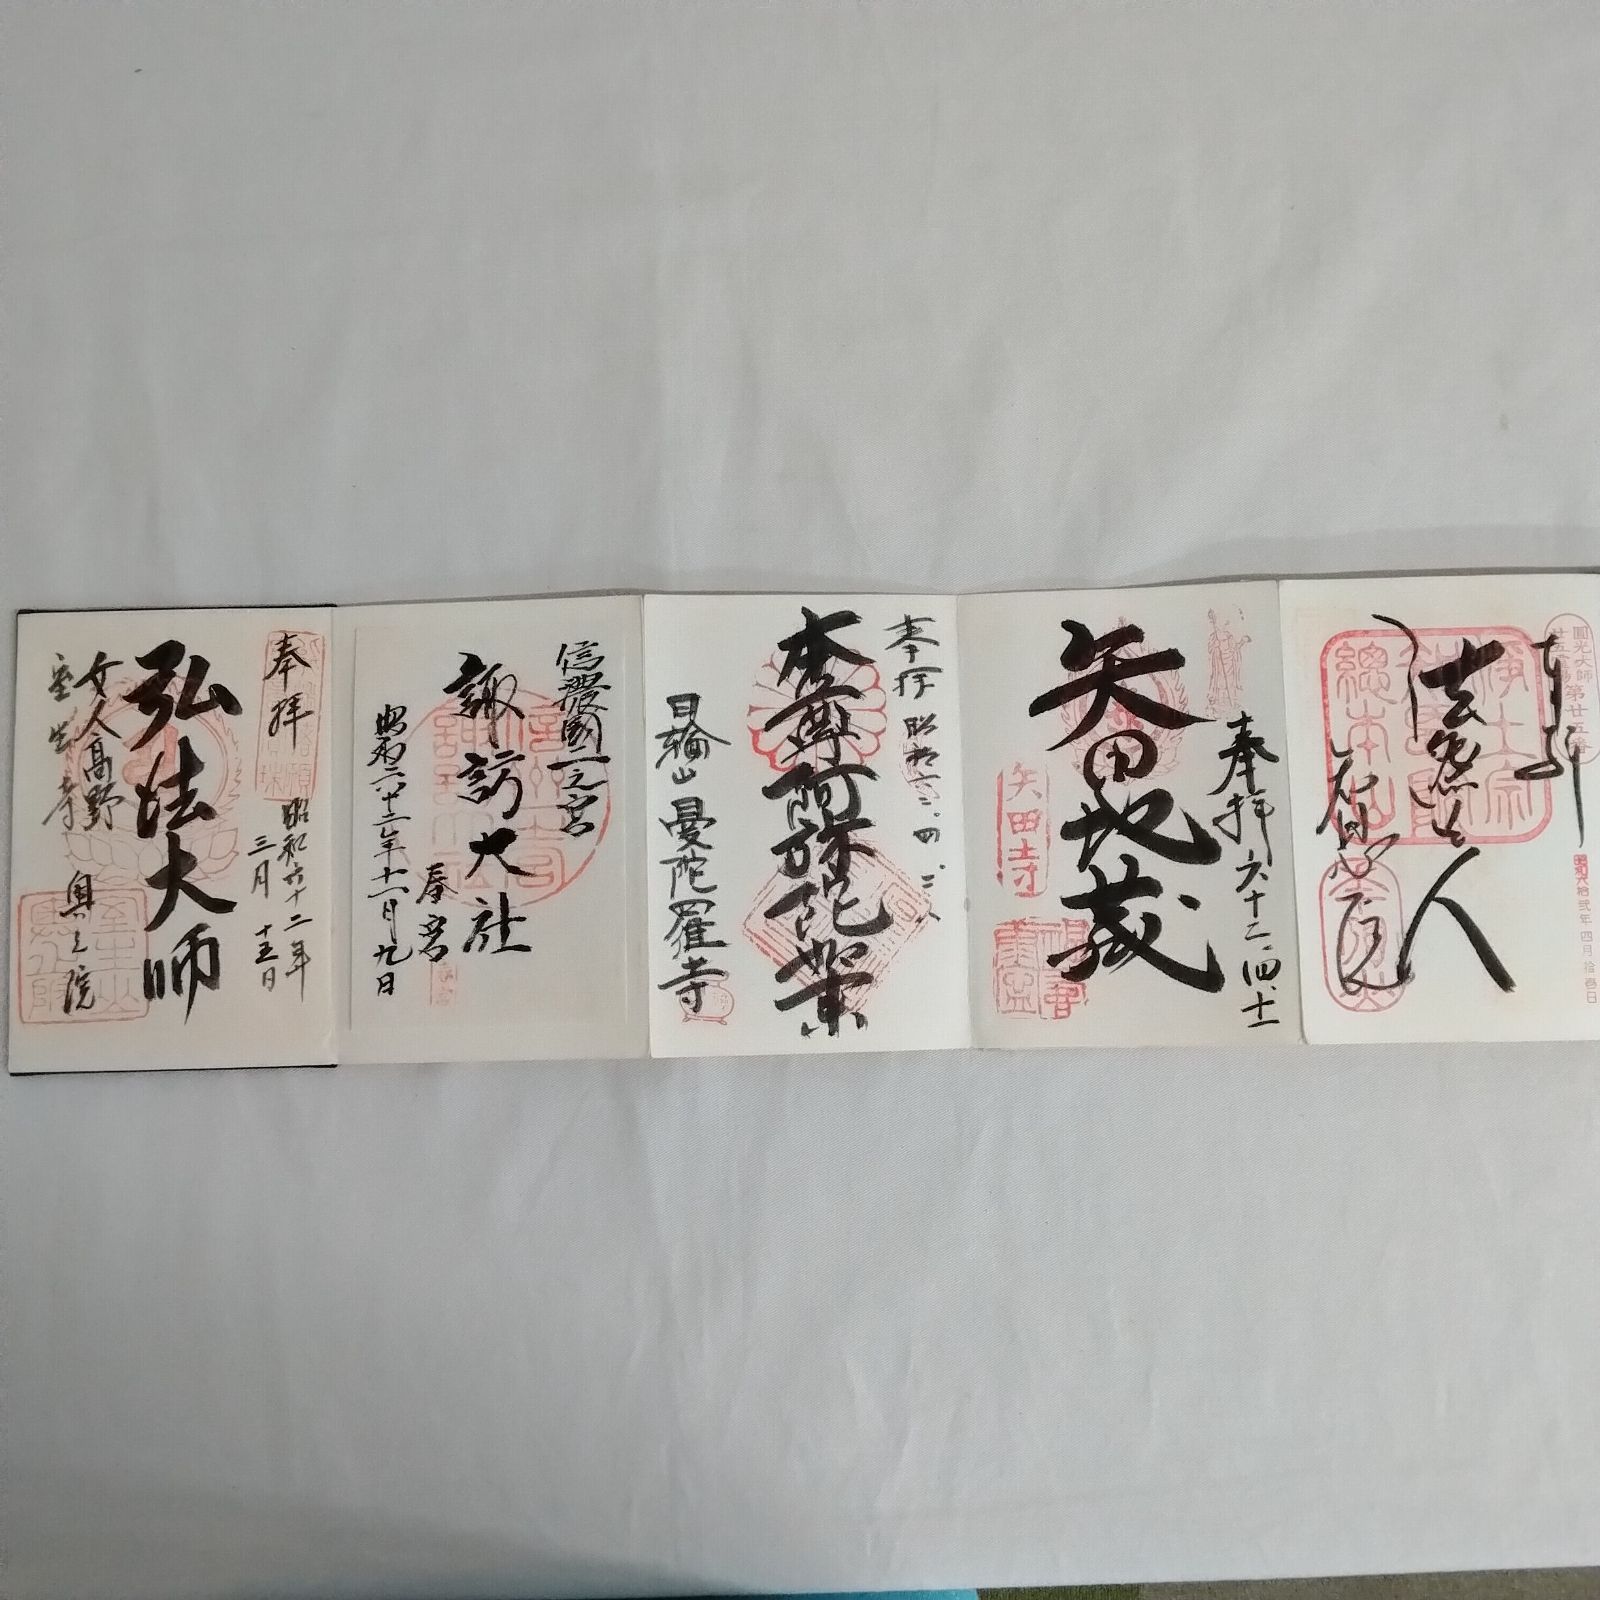 奉拝
法然上人
知恩院
圓光大師
第廿五番
昭和六拾弐年四月拾壱日
浄土宗
總本山
奉拝 六十二、四、十一
矢田地蔵
矢田寺
奉拝 昭和六二、四、二八
本尊阿弥陀業
日輪山 曼陀羅寺
信濃國一之宮
諏訪大社
春宮
昭和六十二年十一月九日
奉拝
昭和六十二年
三月 十五日
弘法大師
女人高野
室生寺 奥之院